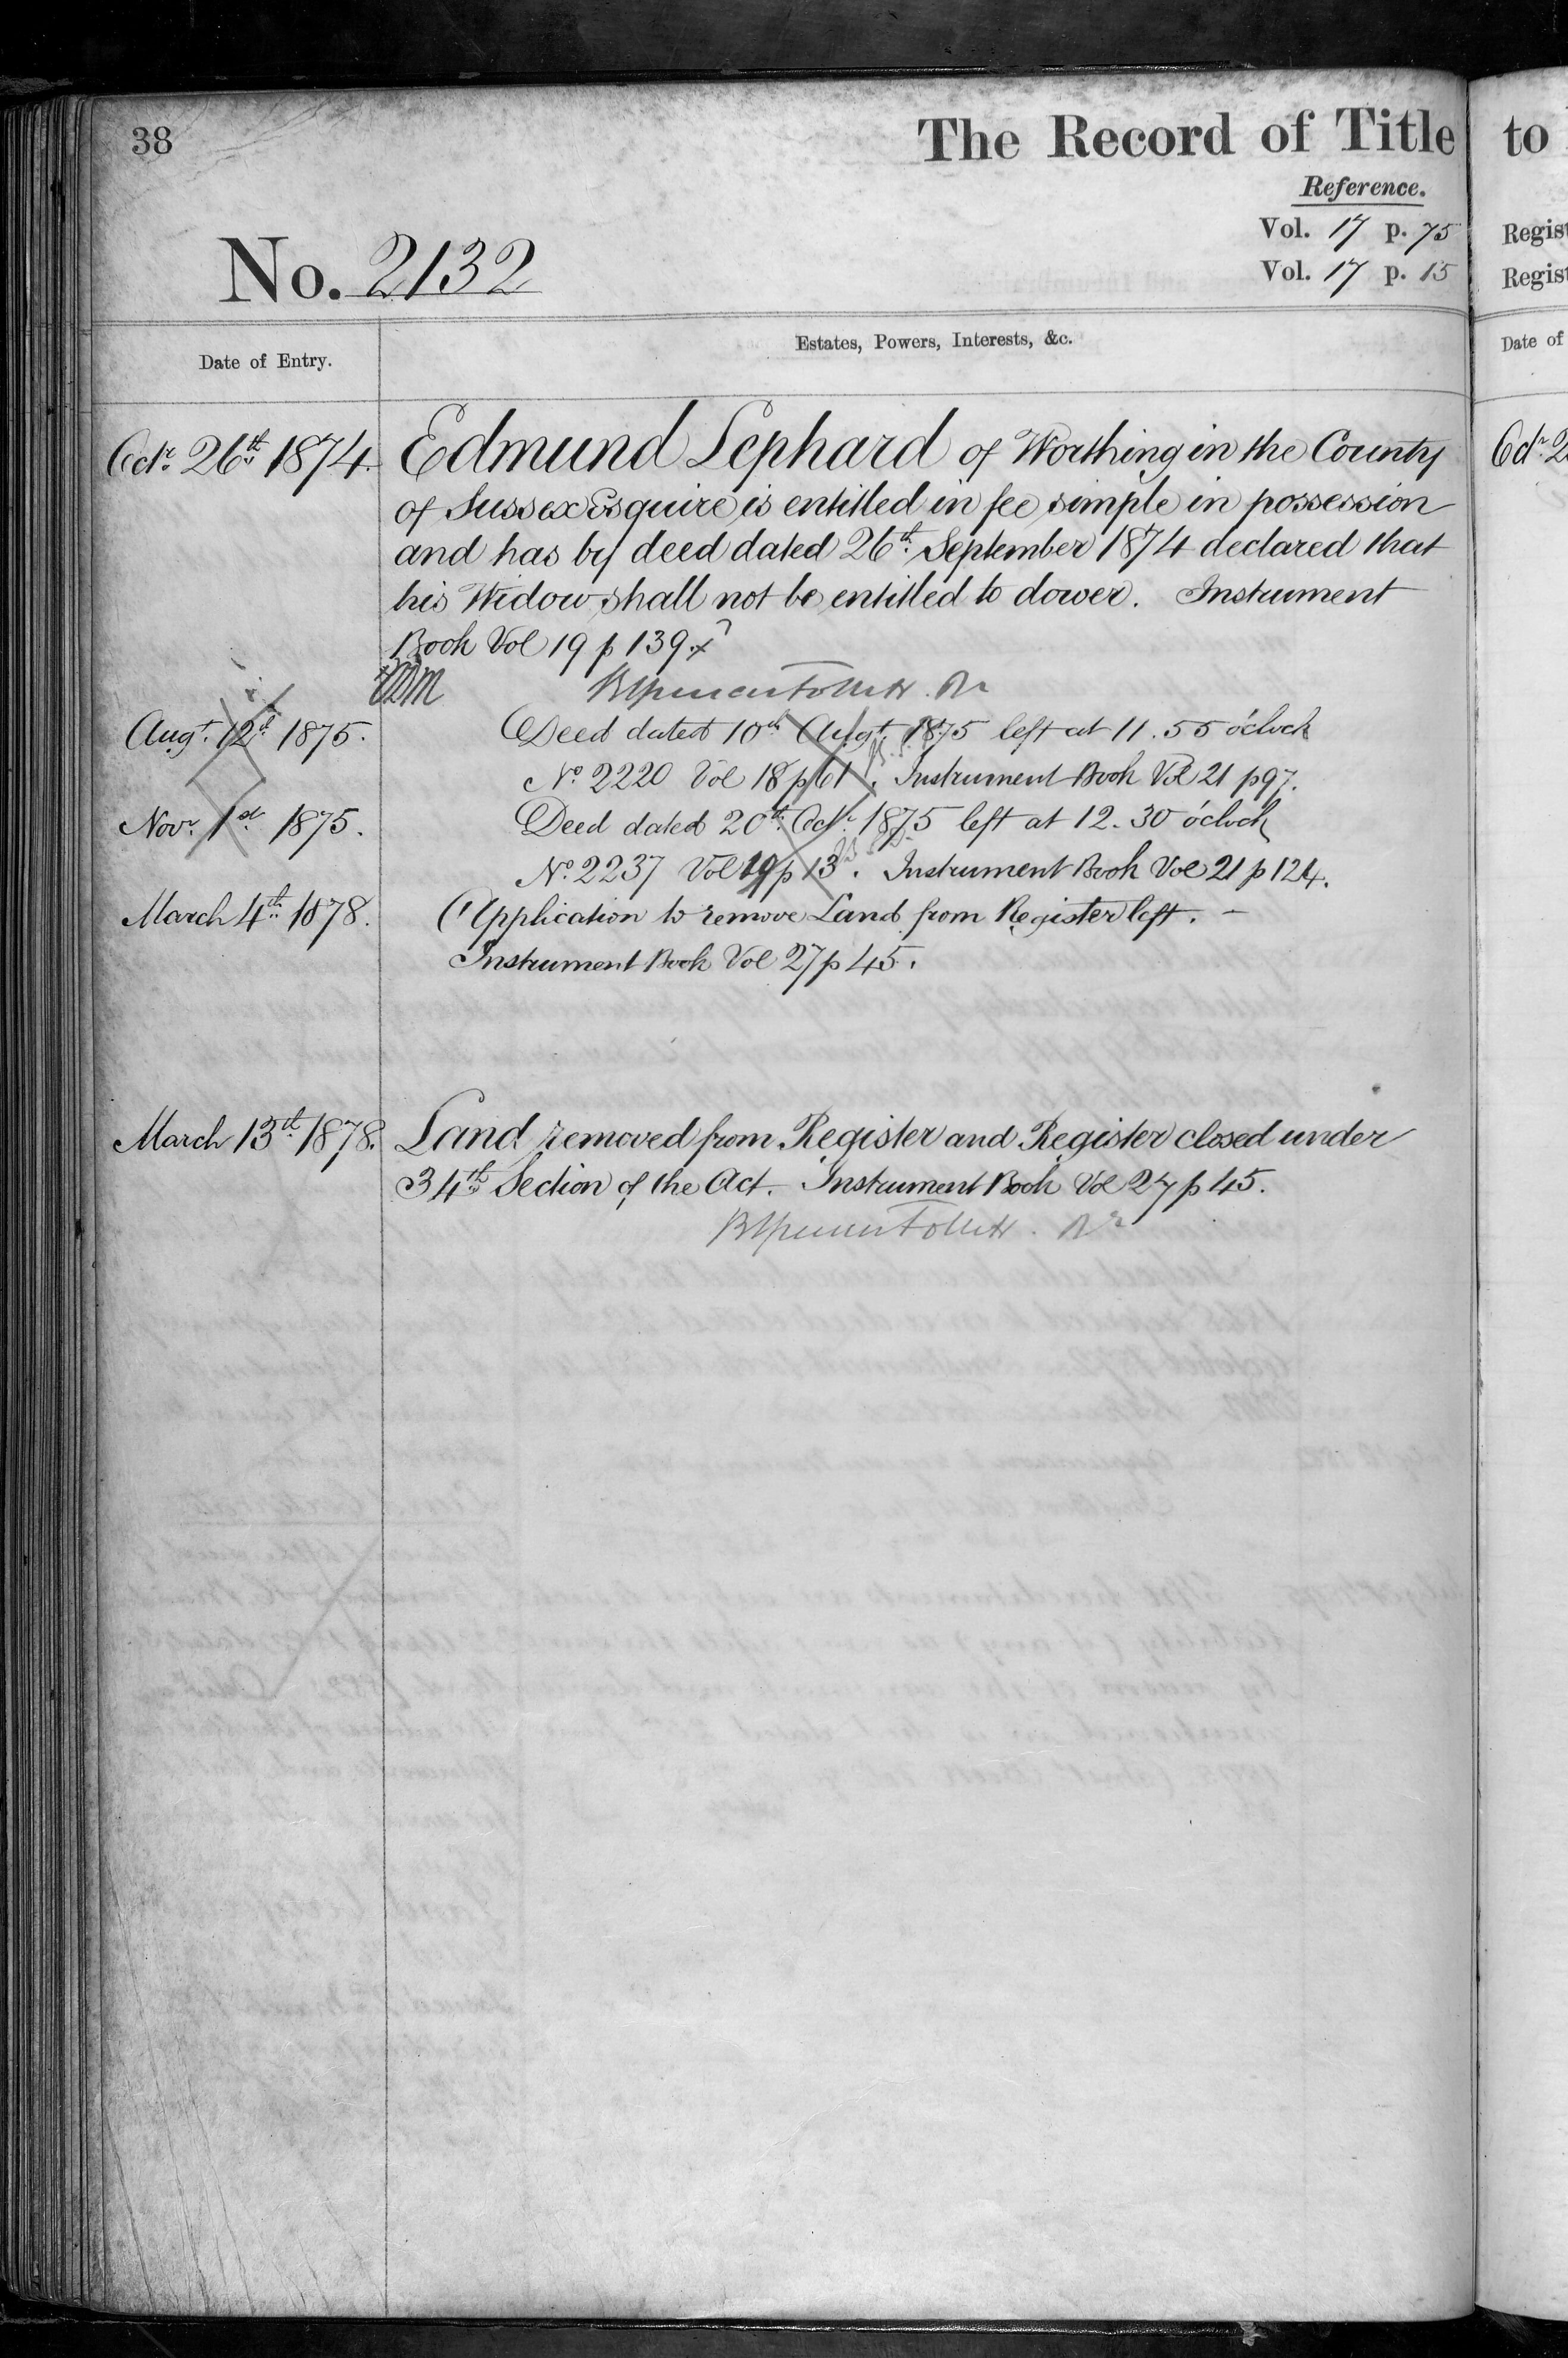 38
The Record of Title
to
Reference.
Vol. 17 p. 75
Vol. 17 p. 15
Regist
Regist
No. 2132
Date of Entry.
Estates, Powers, Interests, &c.
Date of
Octr. 26th 1874.
Edmund Lephard of Worthing in the County
of Sussex Esquire is entitled in fee simple in possession
and has by deed dated 26th September 1874 declared that
his Widow shall not be entitled to dower. Instrument
Book Vol 19 p 139.
Augt. 12th 1875.
Deed dated 10th Augt. 1875 left at 11.55 o'clock
No. 2220 Vol 18 p 61. Instrument Book Vol 21 p 97.
Novr. 1st 1875.
Deed dated 20th Octr. 1875 left at 12.30 o'clock
No. 2237 Vol 19 p 13. Instrument Book Vol 21 p 124.
March 4th 1878.
Application to remove Land from Register left. -
Instrument Book Vol 27 p 45.
March 13th 1878.
Land removed from Register and Register closed under
34th Section of the Act. Instrument Book Vol 27 p 45.
Octr. 2